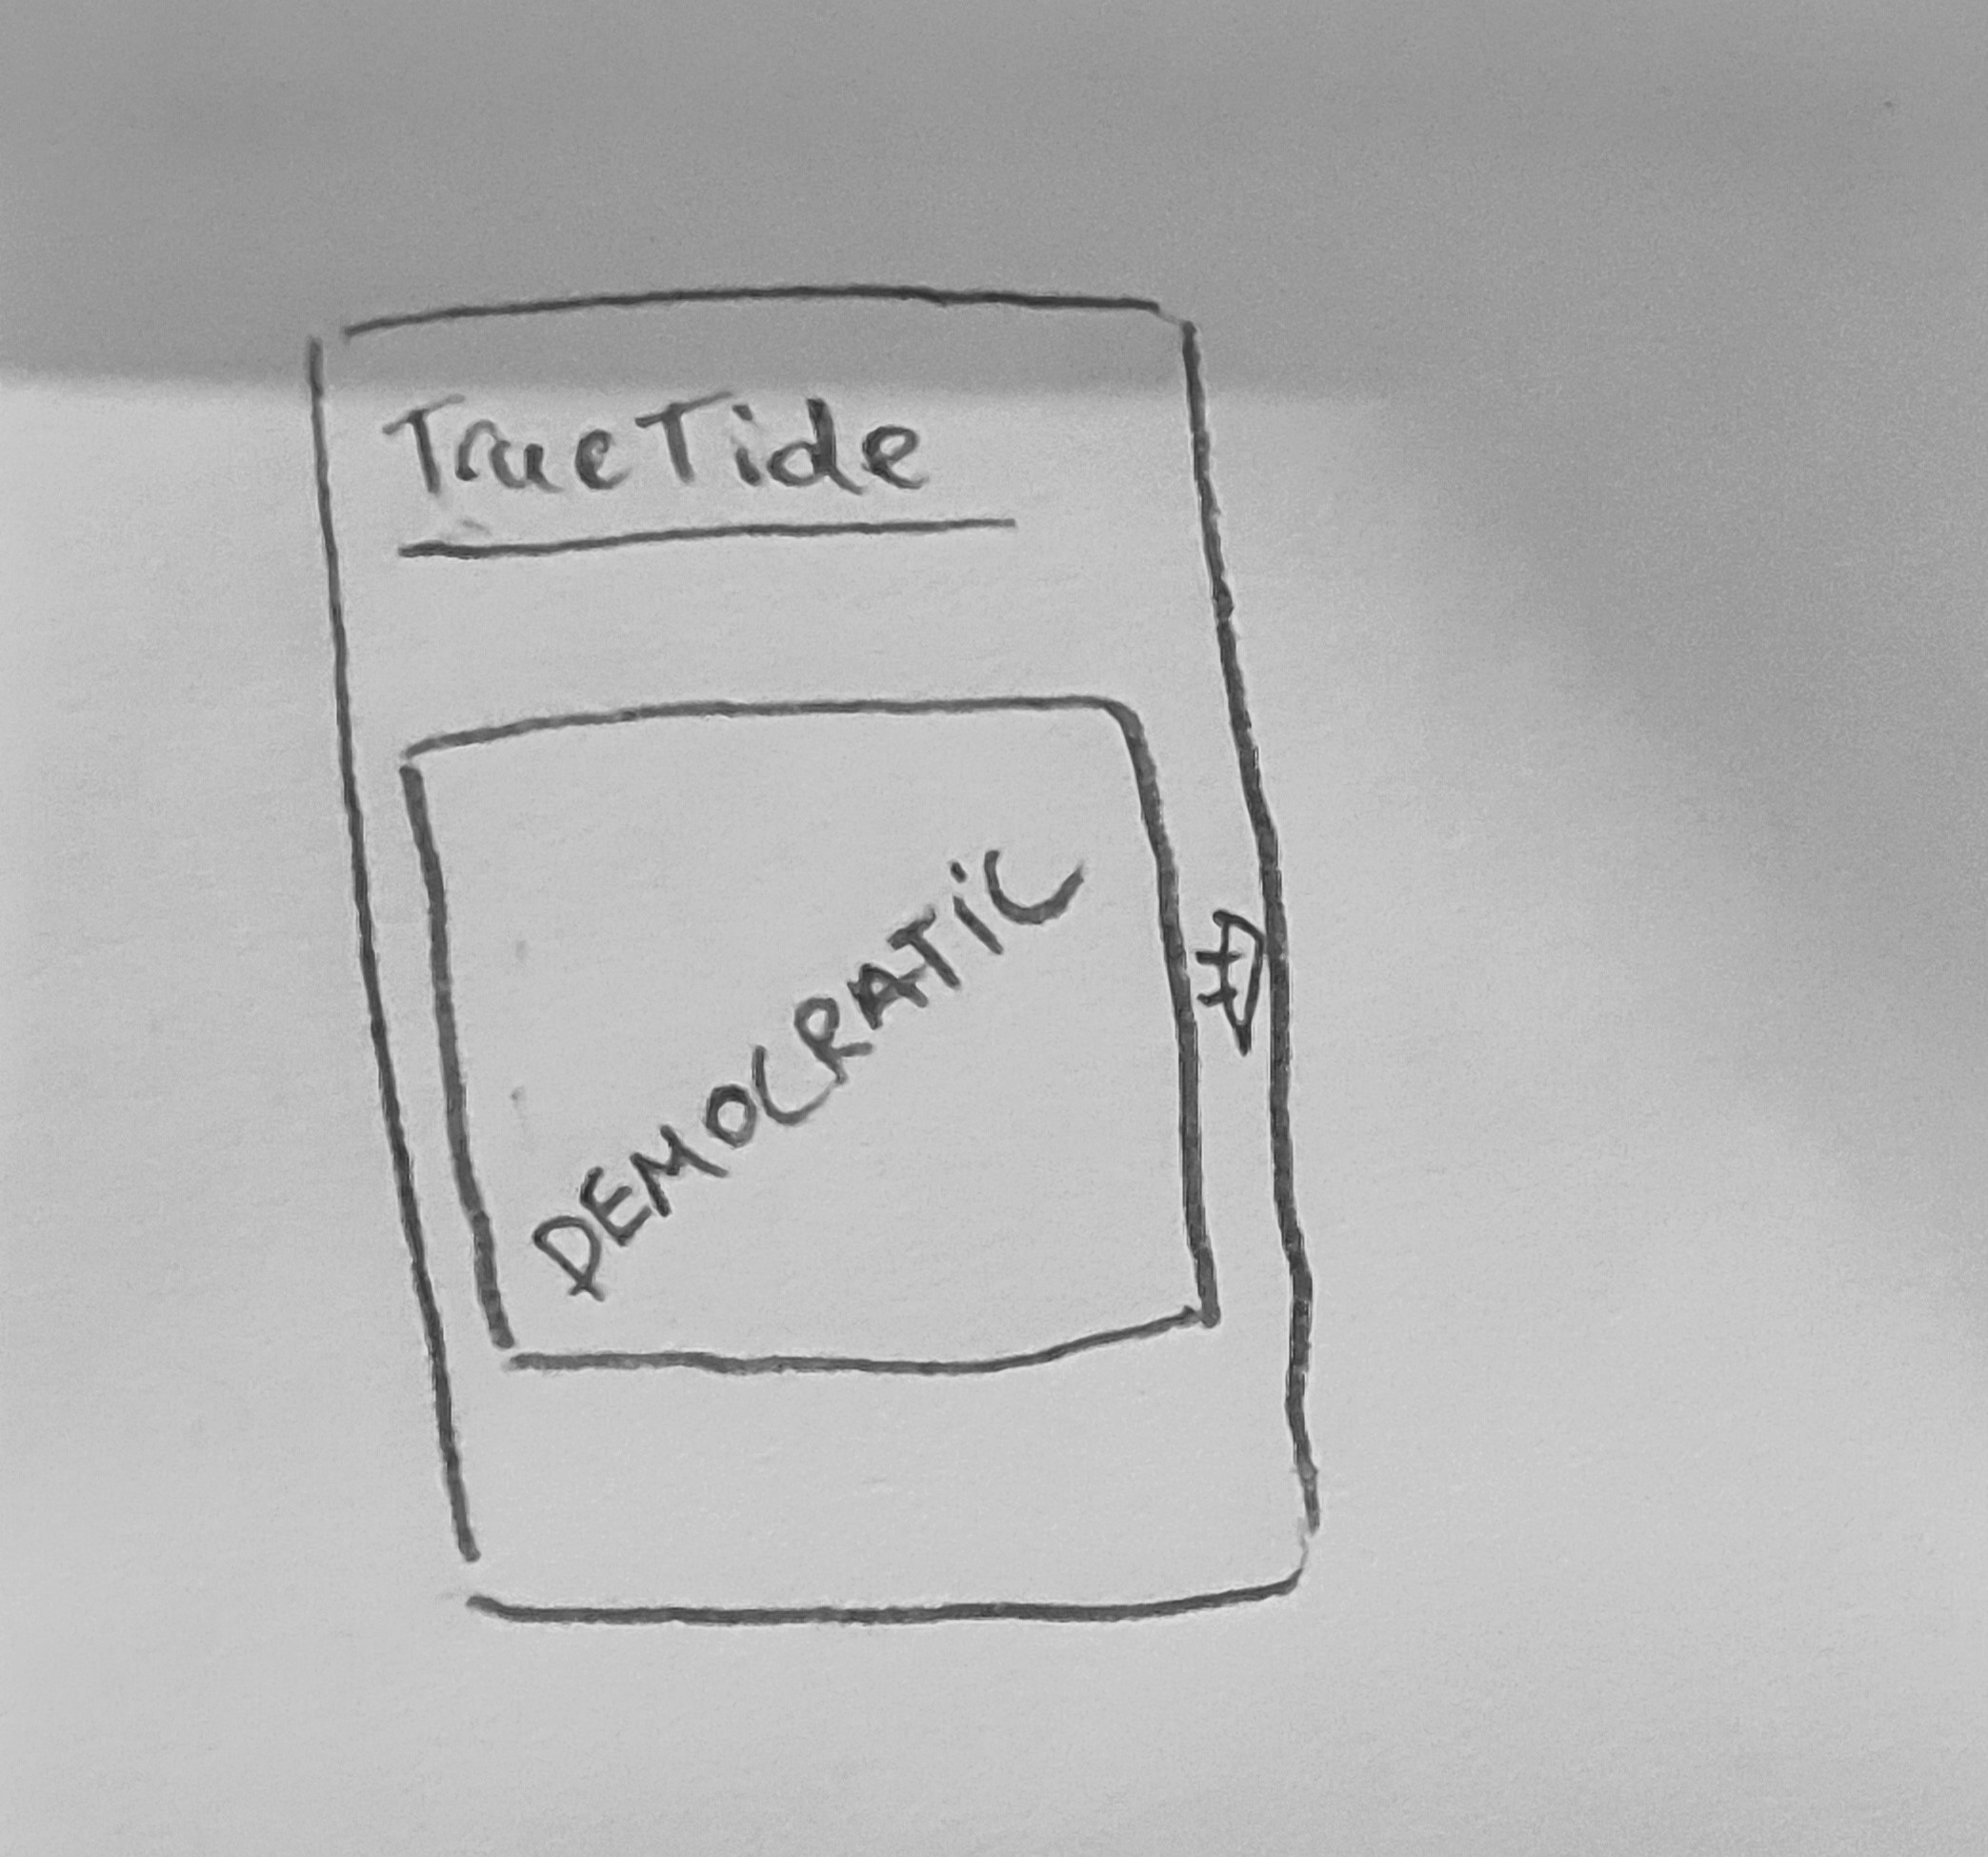 TrueTide
DEMOCRATIC